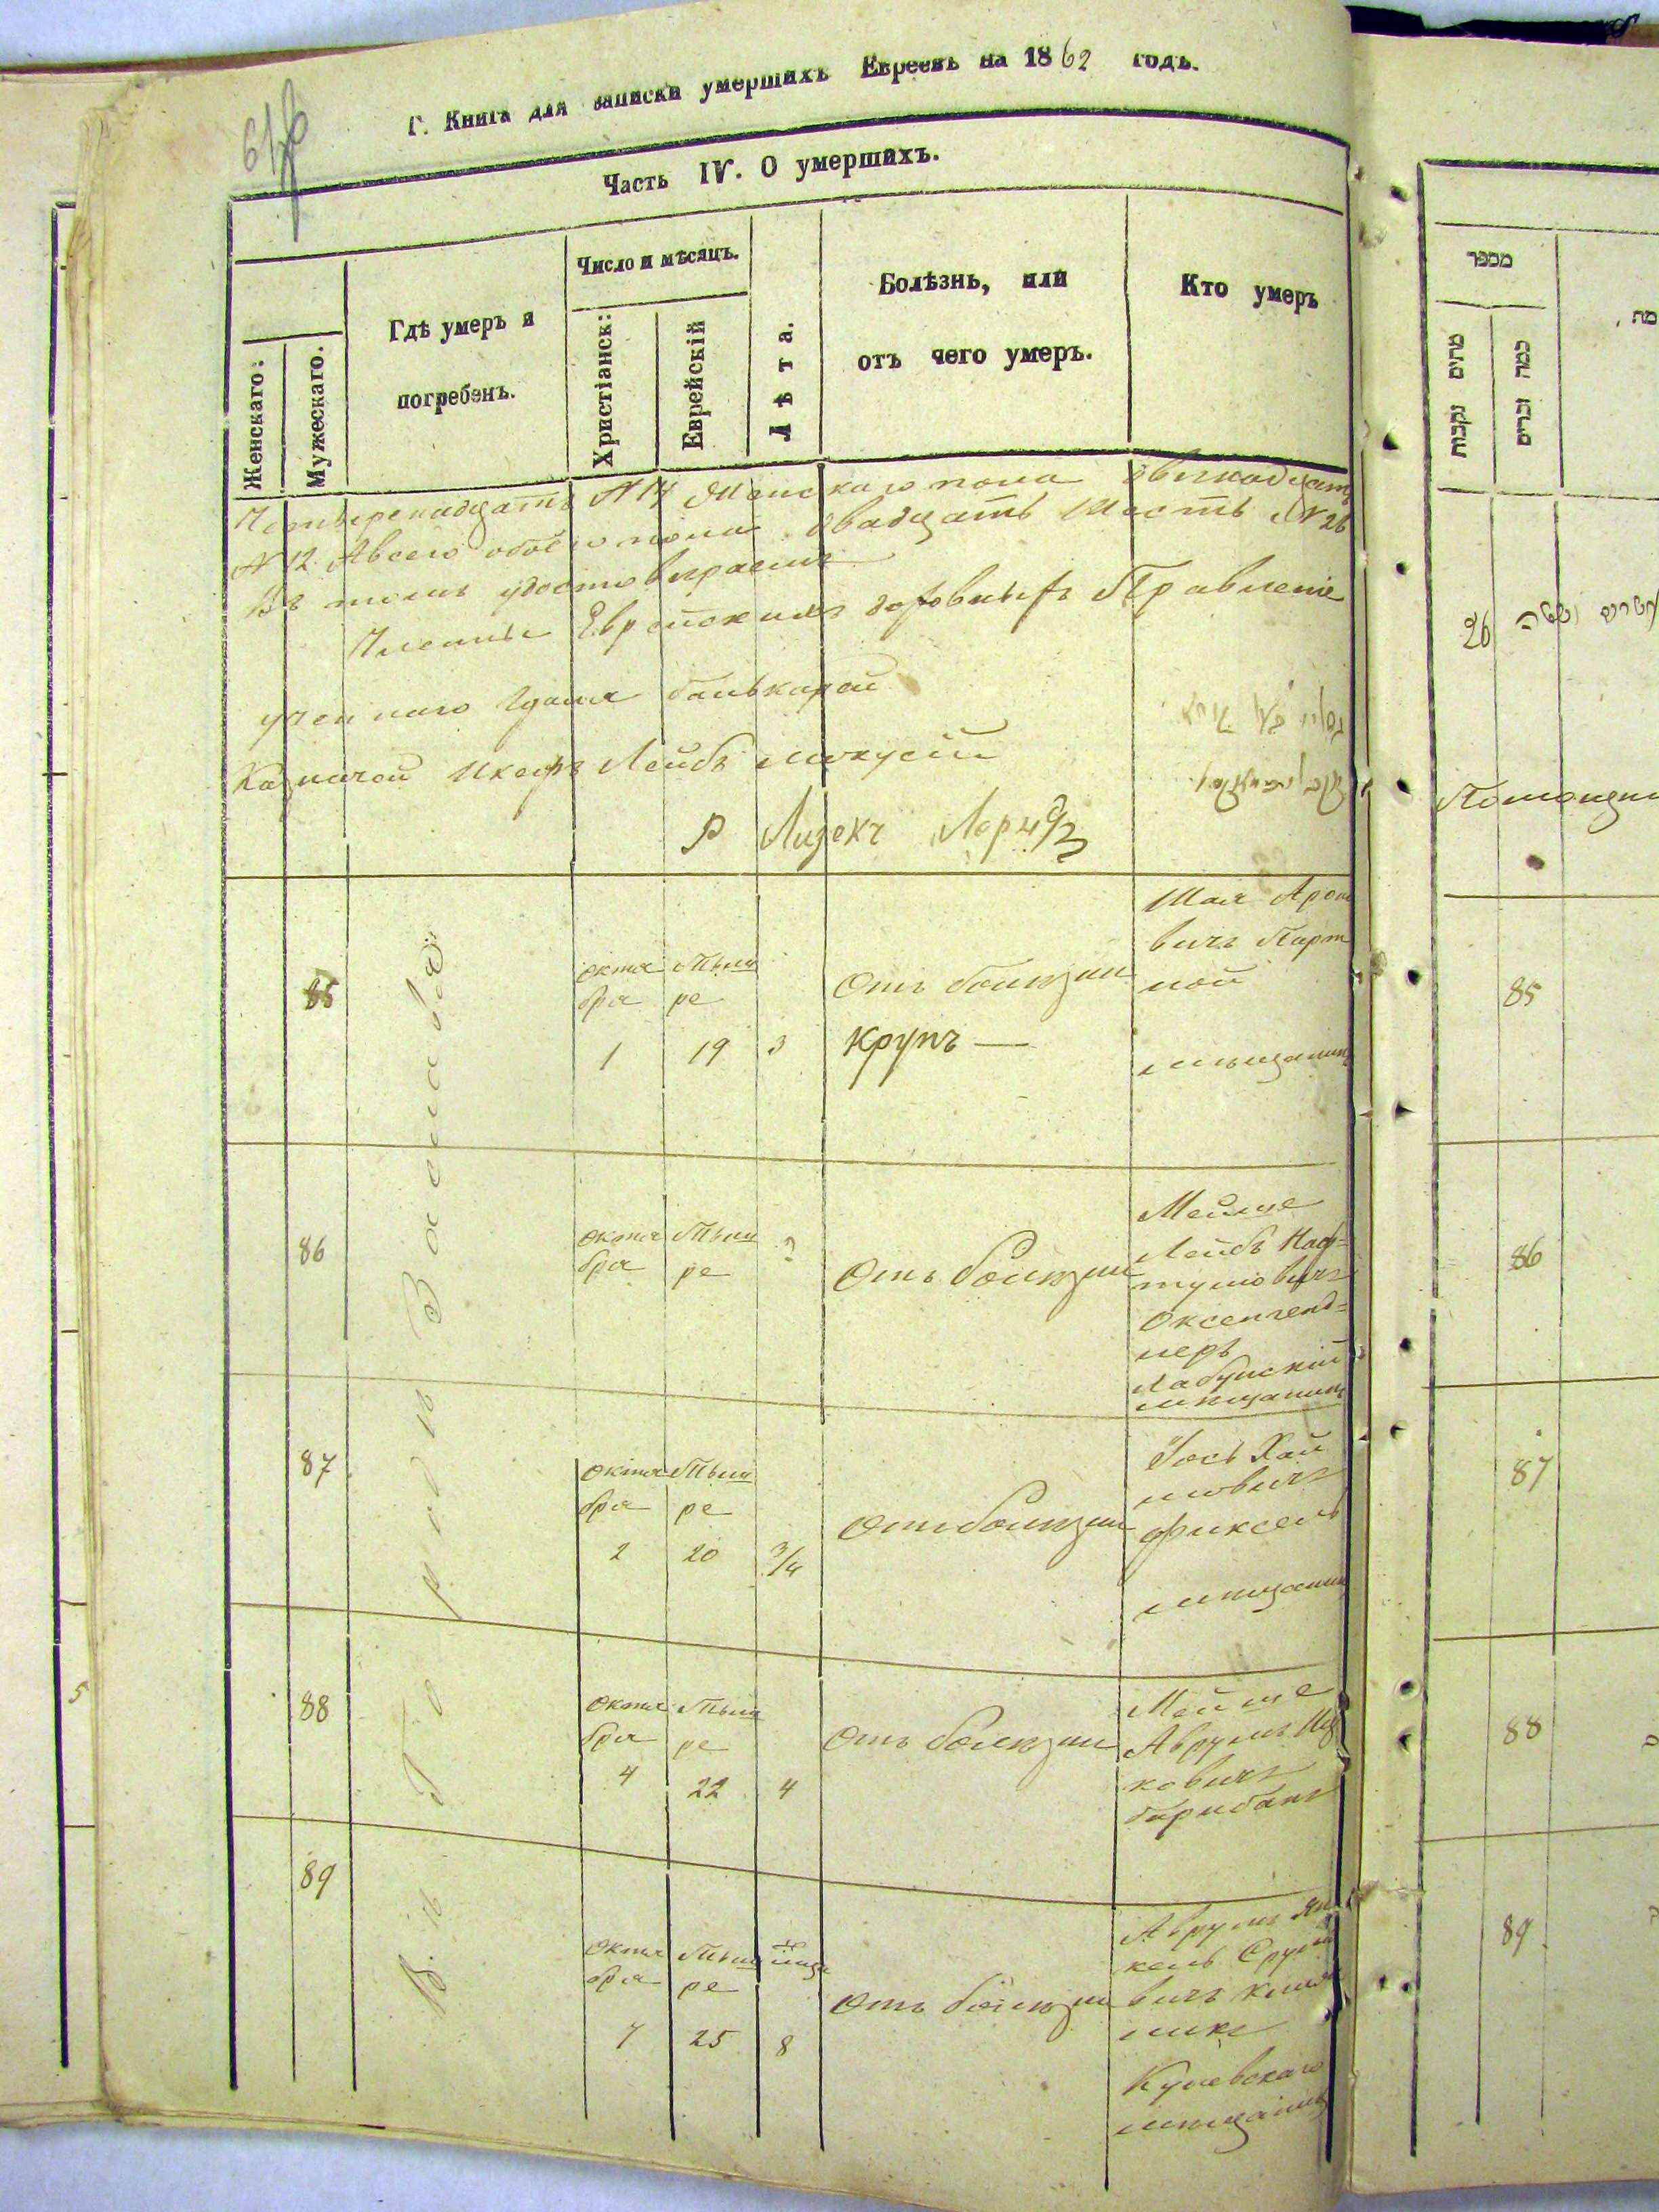 Г. Книга для записки умершихъ Евреевъ на 1862 годъ.
Часть IV. О умершихъ.
Женскаго:
Мужескаго.
Гдѣ умеръ и
погребенъ.
Число и мѣсяцъ.
Христіанск:
Еврейскій
Лѣта.
Болѣзнь, или
отъ чего умеръ.
Кто умеръ
Четыренадцать №14 Женскаго пола двенадцать
№12. Авсего обоего пола двадцать шесть №26
Въ томъ удостовѣраемъ
Члены Еврейскихъ духовныхъ Правленіе
ученнаго
Казначей Лейбъ
Въ городѣ Заславлѣ
85
октя
бра
1
Тыш
ре
19
3
Отъ болѣзни
крупъ —
Шая Арон
вичъ Порт
ной
мѣщанинъ
86
октя
бра
Тыш
ре
?
Отъ болѣзни
Мейше
Лейбъ Наф=
туловичъ
Оксенгенд=
леръ
Лабунскій
мѣщанинъ
87
октя
бра
2
Тыш
ре
20
3/4
Отъ болѣзни
Іось Хай
мовичъ
Фиксель
мѣщанинъ
88
октя
бра
4
Тыш
ре
22
4
Отъ болѣзни
Мейше
Аврумъ Иц
ковичъ
барабанъ
89
октя
бра
7
Тыш
ре
25
8
Отъ болѣзни
Аврумъ Ян
кель Сруле
вичъ
мѣщанинъ
מספר
מתים נקבות
כמה זכרים
26
85
86
87
88
89